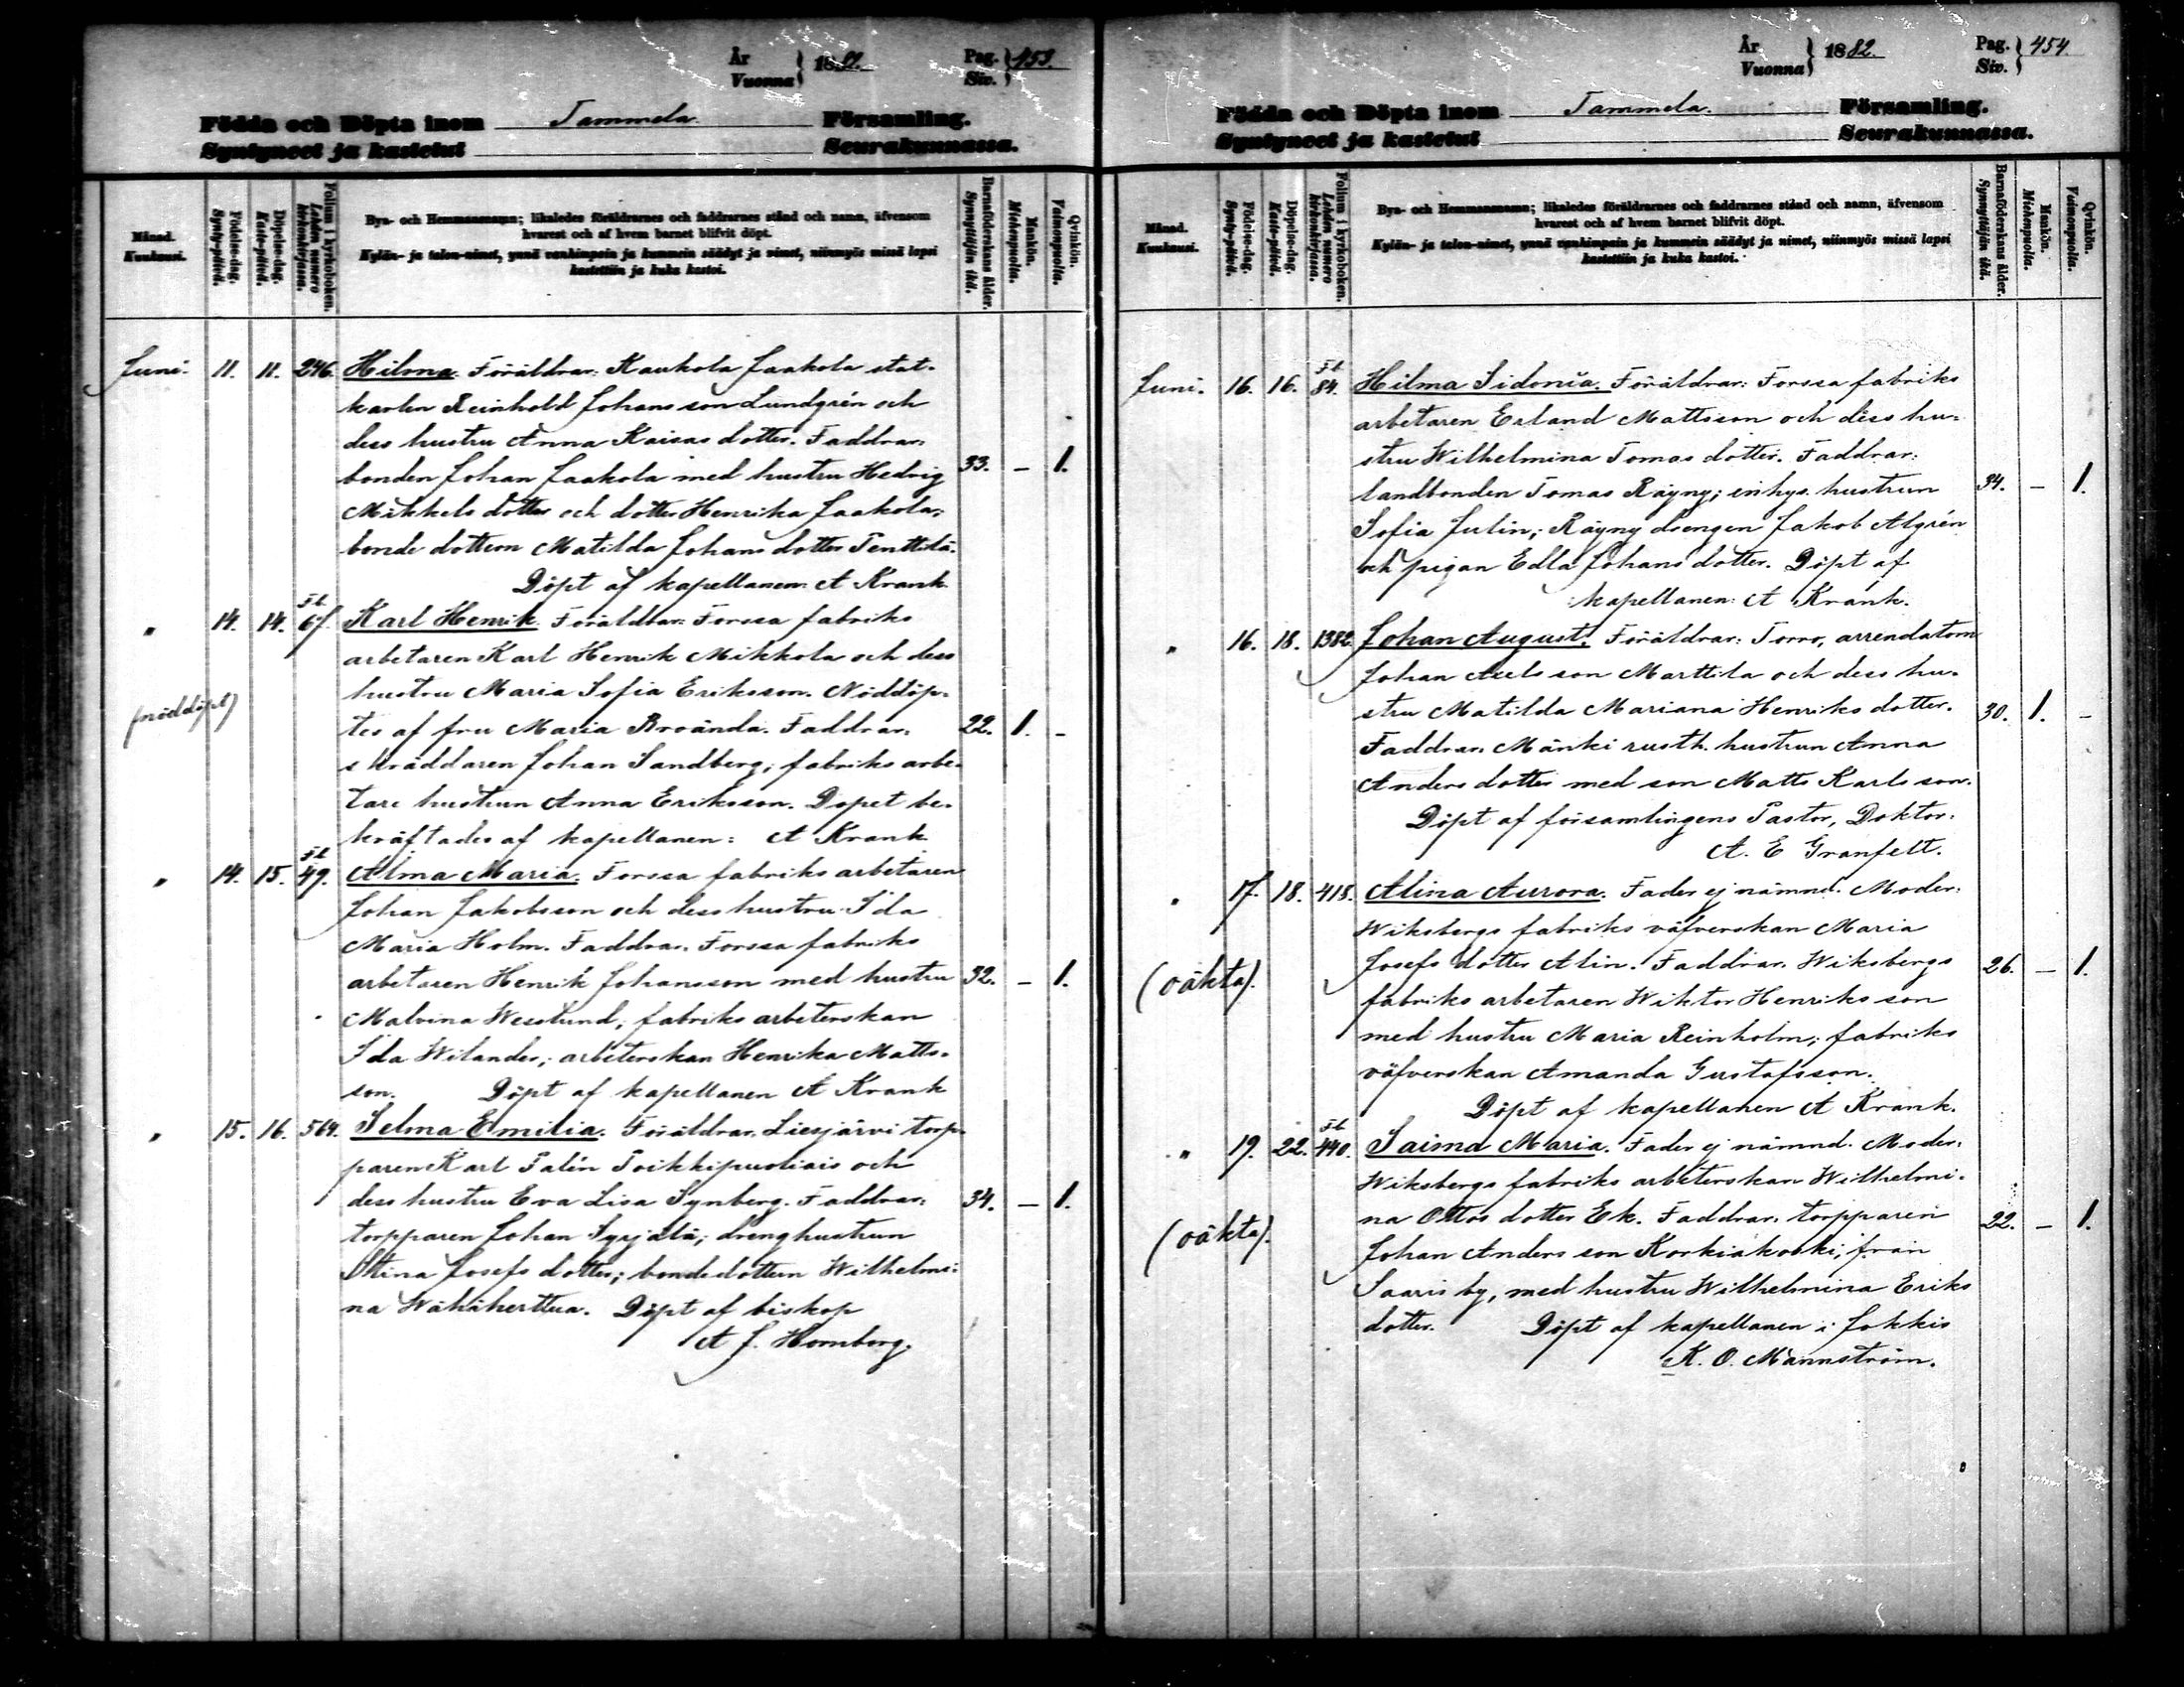 År
Vuonna } 1882.
Pag.
Siv. } 453.
Födda och Döpta inom Tammela. Församling.
Syntyneet ja kastetut Seurakunnassa.
Månad.
Kuukausi.
Födelse-dag.
Synty-päivä.
Döpelse-dag.
Kaste-päivä.
Folium i kyrkoboken.
Lehden numero kirkonkirjassa.
Bya- och Hemmansnamn; likaledes föräldrarnes och faddrarnes stånd och namn, äfvensom
hvarest och af hvem barnet blifvit döpt.
Kylän- ja talon-nimet, ynnä vanhimpain ja kummein säädyt ja nimet, niinmyös missä lapsi
kastettiin ja kuka kastoi.
Barnaföderskans ålder.
Synnyttäjän ikä.
Mankön.
Miehenpuolta.
Qvinkön.
Vaimonpuolta.
Juni. 11. 11. 246. Hilma. Föräldrar: Kaukola Jaakola stat-
karlen Reinhold Johansson Lundgrén och
dess hustru Anna Kaisas dotter. Faddrar:
bonden Johan Jaakola med hustru Hedvig 33. – 1.
Mikkels dotter och dotter Henrika Jaakola;
bonde dottern Matilda Johans dotter Penttilä.
Döpt af kapellanen: A Krank.
" 14. 14. Fb 67. Karl Henrik. Föräldrar: Forssa fabriks
arbetaren Karl Henrik Mikkola och dess
hustru Maria Sofia Eriksson. Nöddöp-
(nöddöpt) tes af fru Maria Broända. Faddrar: 22. 1. –
skräddaren Johan Sandberg; fabriks arbe-
tare hustrun Anna Eriksson. Dopet be-
kräftades af kapellanen: A Krank.
" 14. 15. Fb 49. Alma Maria. Forssa fabriks arbetaren
Johan Jakobsson och dess hustru Ida
Maria Holm. Faddrar: Forssa fabriks
arbetaren Henrik Johansson med hustru 32. – 1.
Malvina Wesslund; fabriks arbeterskan
Ida Wilander; arbeterskan Henrika Matts-
son. Döpt af kapellanen A Krank
" 15. 16. 564. Selma Emilia. Föräldrar: Liesjärvi torp-
paren Karl Palin Poikkipuoliais och
dess hustru Eva Lisa Synberg. Faddrar: 34. – 1.
torpparen Johan Syrjälä; drenghustrun
Stina Josefs dotter; bondedottern Wilhelmi-
na Wähäherttua. Döpt af biskop
A J. Hornborg.
År
Vuonna } 1882.
Pag.
Siv. } 454.
Födda och Döpta inom Tammela. Församling.
Syntyneet ja kastetut Seurakunnassa.
Månad.
Kuukausi.
Födelse-dag.
Synty-päivä.
Döpelse-dag.
Kaste-päivä.
Folium i kyrkoboken.
Lehden numero kirkonkirjassa.
Bya- och Hemmansnamn; likaledes föräldrarnes och faddrarnes stånd och namn, äfvensom
hvarest och af hvem barnet blifvit döpt.
Kylän- ja talon-nimet, ynnä vanhimpain ja kummein säädyt ja nimet, niinmyös missä lapsi
kastettiin ja kuka kastoi.
Barnaföderskans ålder.
Synnyttäjän ikä.
Mankön.
Miehenpuolta.
Qvinkön.
Vaimonpuolta.
Juni. 16. 16. Fb 84. Hilma Sidonia. Föräldrar: Forssa fabriks
arbetaren Erland Mattsson och dess hu-
stru Wilhelmina Tomas dotter. Faddrar:
landbonden Tomas Räyny; inhys. hustrun 34. – 1.
Sofia Julin; Räyny drengen Jakob Algrén
och pigan Edla Johans dotter. Döpt af
kapellanen: A Krank.
" 16. 18. 1382. Johan August. Föräldrar: Torro, arrendatorn
Johan Axels son Marttila och dess hu-
stru Matilda Mariana Henriks dotter. 30. 1. –
Faddrar: Mänki rusth. hustrun Anna
Anders dotter med son Matts Karls son.
Döpt af församlingens Pastor, Doktor:
A. E Granfelt.
" 17. 18. 418. Alina Aurora. Fader ej nämnd. Moder:
Wiksbergs fabriks väfverskan Maria
(oäkta). Josefs dotter Alin. Faddrar: Wiksbergs 26. – 1.
fabriks arbetaren Wiktor Henriks son
med hustru Maria Reinholm; fabriks
väfverskan Amanda Gustafsson.
Döpt af kapellanen A Krank.
" 19. 22. Fb 440. Saima Maria. Fader ej nämnd. Moder:
Wiksbergs fabriks arbeterskan Wilhelmi-
(oäkta). na Ottos dotter Ek. Faddrar: torpparen 22. – 1.
Johan Anders son Korkiakoski, från
Saaris by, med hustru Wilhelmina Eriks
dotter. Döpt af kapellanen i Jokkis
K. O. Mannström.